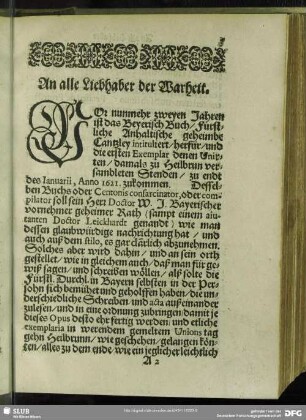 An alle Liebhaber der Warheit.
VOr nunmehr zweyen Jahren
ist das Beyerisch Buch/ Fürst-
liche Anhaltische geheimbde
Cantzley intituliert/ herfür/ und
die ersten Exemplar denen Unir-
ten/ damals zu Heilbrun ver-
sambleten Stenden/ zu endt
des Ianuarii, Anno 1621. zukommen. Dessel-
ben Buchs oder Centonis consarcinator, oder com-
pilator soll sein Herr Doctor W. J. Bayerischer
vornehmer geheimer Rath (sampt einem aiu-
tanten Doctor Leickhardt genandt) wie man
dessen glaubwürdige nachrichtung hat/ und
auch auß dem stilo, es gar clärlich abzunehmen.
Solches aber wird dahin/ und an sein orth
gestellet/ wie in gleichem auch/ daß man für ge-
wiß sagen/ und schreiben wöllen/ als solte die
Fürstl. Durchl. in Bayern selbsten in der Per-
sohn sich bemühet und geholffen haben/ die un-
derschiedliche Schreiben und acta auß einander
zulesen/ und in eine ordnung zubringen/ damit je
dieses Opus desto ehr fertig werden/ und etliche
exemplaria in werendem gemeltem Unions tag
gehn Heilbrunn/ wie geschehen/ gelangen kön-
ten/ alles zu dem ende/ wie ein jeglicher leichtlich
A 2
SLUB
Wir führen Wissen.
DFG